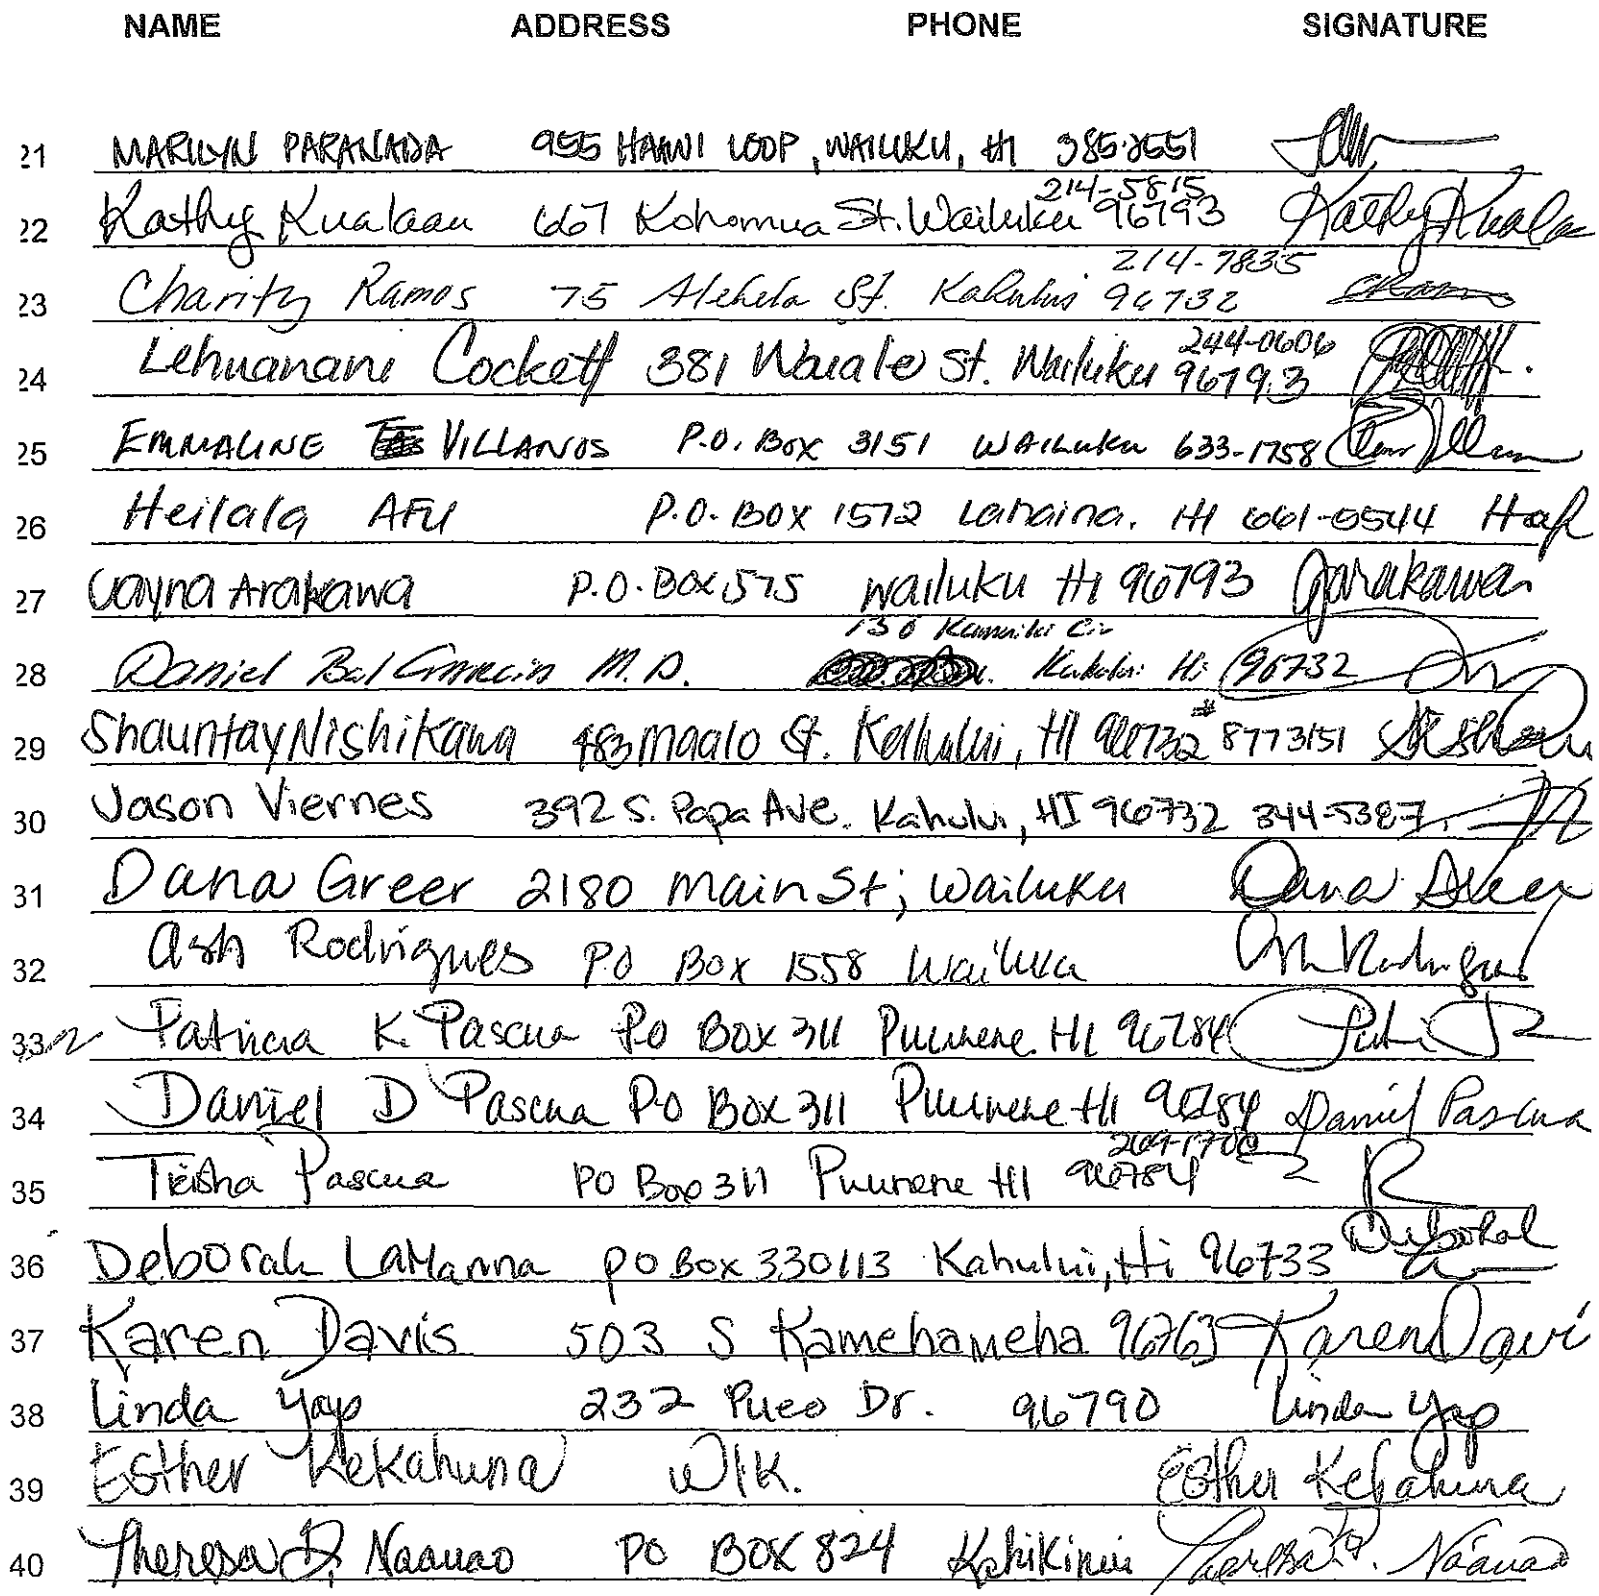 NAME ADDRESS PHONE SIGNATURE
21 MARILYN PARANADA 955 HAAWI LOOP, WAILUKU, HI 385-2551
22 Kathy Kualaau 667 Kohomua St. Wailuku 214-5815 96793 Kathy Kualaau
23 Charity Ramos 75 Alehela St. Kahului 214-7835 96732
24 Lehuanani Cockett 381 Waiale St. Wailuku 244-0606 96793
25 EMMALINE VILLANOS P.O. Box 3151 WAILUKU 633-1758
26 Heilala AFU P.O. BOX 1572 Lahaina, HI 661-0544
27 Jayna Arakawa P.O. BOX 575 wailuku HI 96793 Jarakawa
28 Daniel M.D. 150 Cir Kahului Hi 96732
29 Shauntay Nishikawa 483 maalo St. Kahului, HI 96732 # 8773151
30 Jason Viernes 392 S. Papa Ave. Kahului, HI 96732 344-5387
31 Dana Greer 2180 Main St; Wailuku Dana Greer
32 Ash Rodrigues PO Box 1558 Wailuku Ash Rodrigues
33 Patricia K. Pascua Po Box 311 Puunene HI 96784
34 Daniel D Pascua PO Box 311 Puunene HI 96784 Daniel Pascua
35 Trisha Pascua PO Box 311 Puunene HI 96784 264-1700
36 Deborah LaManna PO Box 330113 Kahului, Hi 96733 Deborah
37 Karen Davis 503 S Kamehameha 96763 Karen Davi
38 Linda Yap 232 Pueo Dr. 96790 Linda Yap
39 Esther Kekahuna WlK. Esther Kekahuna
40 Theresa D. Naauao PO BOX 824 Kahikinui Theresa D. Naauao